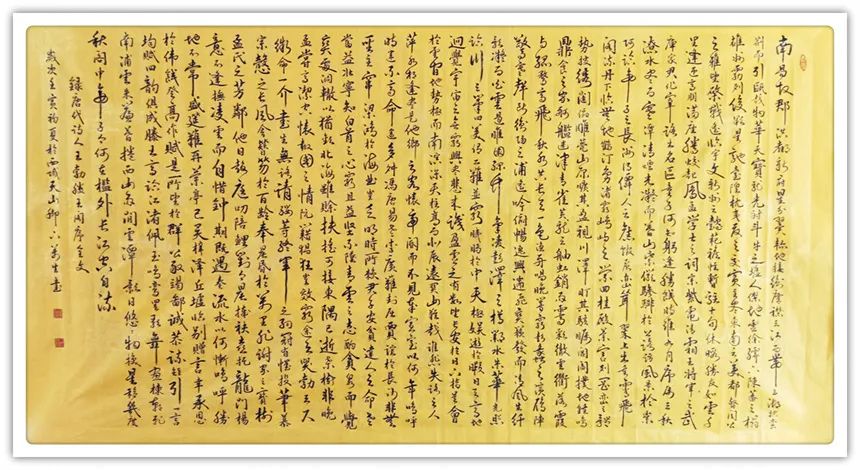 南昌故郡洪都新府星分翼軫地接衡廬襟三江而帶五湖控蠻
荊而引甌越物華天寶龍光射斗牛之墟人傑地靈徐孺下陳蕃之榻
雄州霧列俊彩星馳臺隍枕夷夏之交賓主盡東南之美都督閻公
之雅望棨戟遙臨宇文新州之懿範襜帷暫駐十旬休暇勝友如雲千
里逢迎高朋滿座騰蛟起鳳孟學士之詞宗紫電清霜王將軍之武
庫家君作宰路出名區童子何知躬逢勝餞時維九月序屬三秋
潦水盡而寒潭清煙光凝而暮山紫儼驂騑於上路訪風景於崇
阿臨帝子之長洲得仙人之舊館層巒聳翠上出重霄飛
閣流丹下臨無地鶴汀鳧渚窮島嶼之縈迴桂殿蘭宮列岡巒之體
勢披繡闥俯雕甍山原曠其盈視川澤盱其駭矚閭閻撲地鐘鳴
鼎食之家舸艦迷津青雀黃龍之舳虹銷雨霽彩徹雲衢落霞
與孤鶩齊飛秋水共長天一色漁舟唱晚響窮彭蠡之濱雁陣
驚寒聲斷衡陽之浦遙吟俯暢逸興遄飛爽籟發而清風生纖
歌凝而白雲遏睢園綠竹氣凌彭澤之樽鄴水朱華光照
臨川之筆四美俱二難並窮睇眄於中天極娛遊於暇日天高地
迥覺宇宙之無窮興盡悲來識盈虛之有數望長安於日下指吳會
於雲間地勢極而南溟深天柱高而北辰遠關山難越誰悲失路之人
萍水相逢盡是他鄉之客懷帝閽而不見奉宣室以何年嗚呼
時運不齊命途多舛馮唐易老李廣難封屈賈誼於長沙非無
聖主竄梁鴻於海曲豈乏明時所賴君子安貧達人知命老
當益壯寧知白首之心窮且益堅不墜青雲之志酌貪泉而覺
爽處涸轍以猶歡北海雖賒扶搖可接東隅已逝桑榆非晚
孟嘗高潔空懷報國之情阮籍猖狂豈效窮途之哭勃三尺
微命一介書生無路請纓等終軍之弱冠有懷投筆慕
宗愨之長風舍簪笏於百齡奉晨昏於萬里非謝家之寶樹接
孟氏之芳鄰他日趨庭叨陪鯉對今晨捧袂喜托龍門楊
意不逢撫凌雲而自惜鍾期既遇奏流水以何慚嗚呼勝
地不常盛筵難再蘭亭已矣梓澤丘墟臨別贈言幸承恩
於偉餞登高作賦是所望於群公敢竭鄙誠恭疏短引一言
均賦四韻俱成滕王高閣臨江渚佩玉鳴鸞罷歌舞畫棟朝飛
南浦雲朱簾暮捲西山雨閒雲潭影日悠悠物換星移幾度
秋閣中帝子今何在檻外長江空自流
錄唐代詩人王勃滕王閣序全文
歲次壬寅初夏於西域天山腳下萬生書